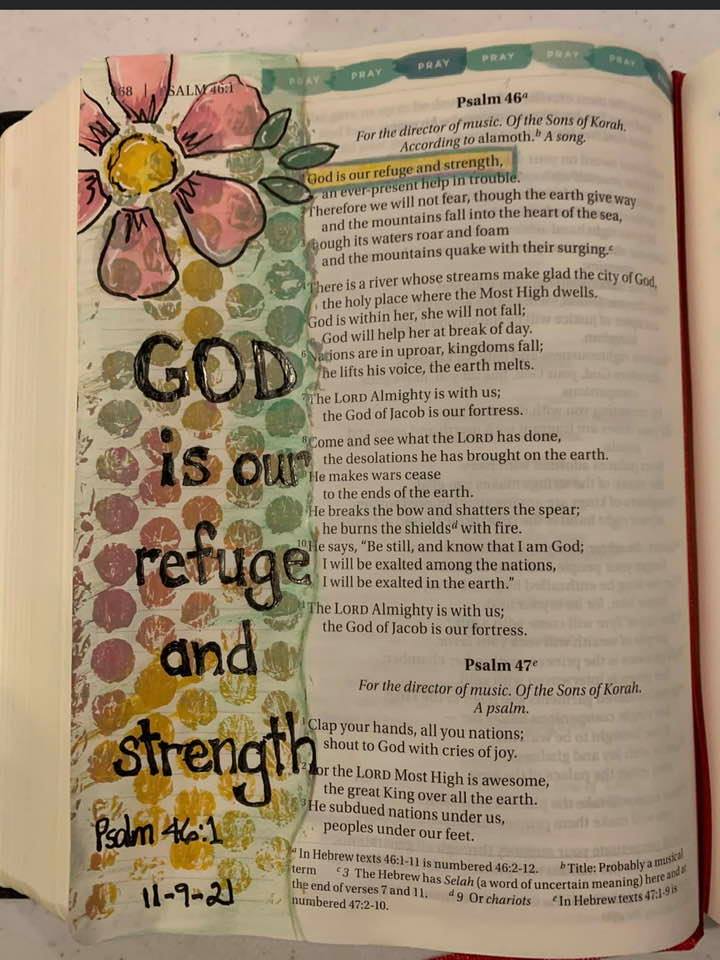 PRAY PRAY PRAY PRAY PRAY PRAY
468 | PSALM 46:1
GOD
is our
refuge
and
strength
Psalm 46:1
11-9-21
Psalm 46a
For the director of music. Of the Sons of Korah.
According to alamoth.b A song.
God is our refuge and strength,
an ever-present help in trouble.
Therefore we will not fear, though the earth give way
and the mountains fall into the heart of the sea,
though its waters roar and foam
and the mountains quake with their surging.c
There is a river whose streams make glad the city of God,
the holy place where the Most High dwells.
God is within her, she will not fall;
God will help her at break of day.
6 Nations are in uproar, kingdoms fall;
he lifts his voice, the earth melts.
7 The LORD Almighty is with us;
the God of Jacob is our fortress.
8 Come and see what the LORD has done,
the desolations he has brought on the earth.
9 He makes wars cease
to the ends of the earth.
He breaks the bow and shatters the spear;
he burns the shieldsd with fire.
10 He says, “Be still, and know that I am God;
I will be exalted among the nations,
I will be exalted in the earth.”
11 The LORD Almighty is with us;
the God of Jacob is our fortress.
Psalm 47e
For the director of music. Of the Sons of Korah.
A psalm.
1 Clap your hands, all you nations;
shout to God with cries of joy.
2 For the LORD Most High is awesome,
the great King over all the earth.
3 He subdued nations under us,
peoples under our feet.
a In Hebrew texts 46:1-11 is numbered 46:2-12. b Title: Probably a musical
term c 3 The Hebrew has Selah (a word of uncertain meaning) here and at
the end of verses 7 and 11. d 9 Or chariots e In Hebrew texts 47:1-9 is
numbered 47:2-10.